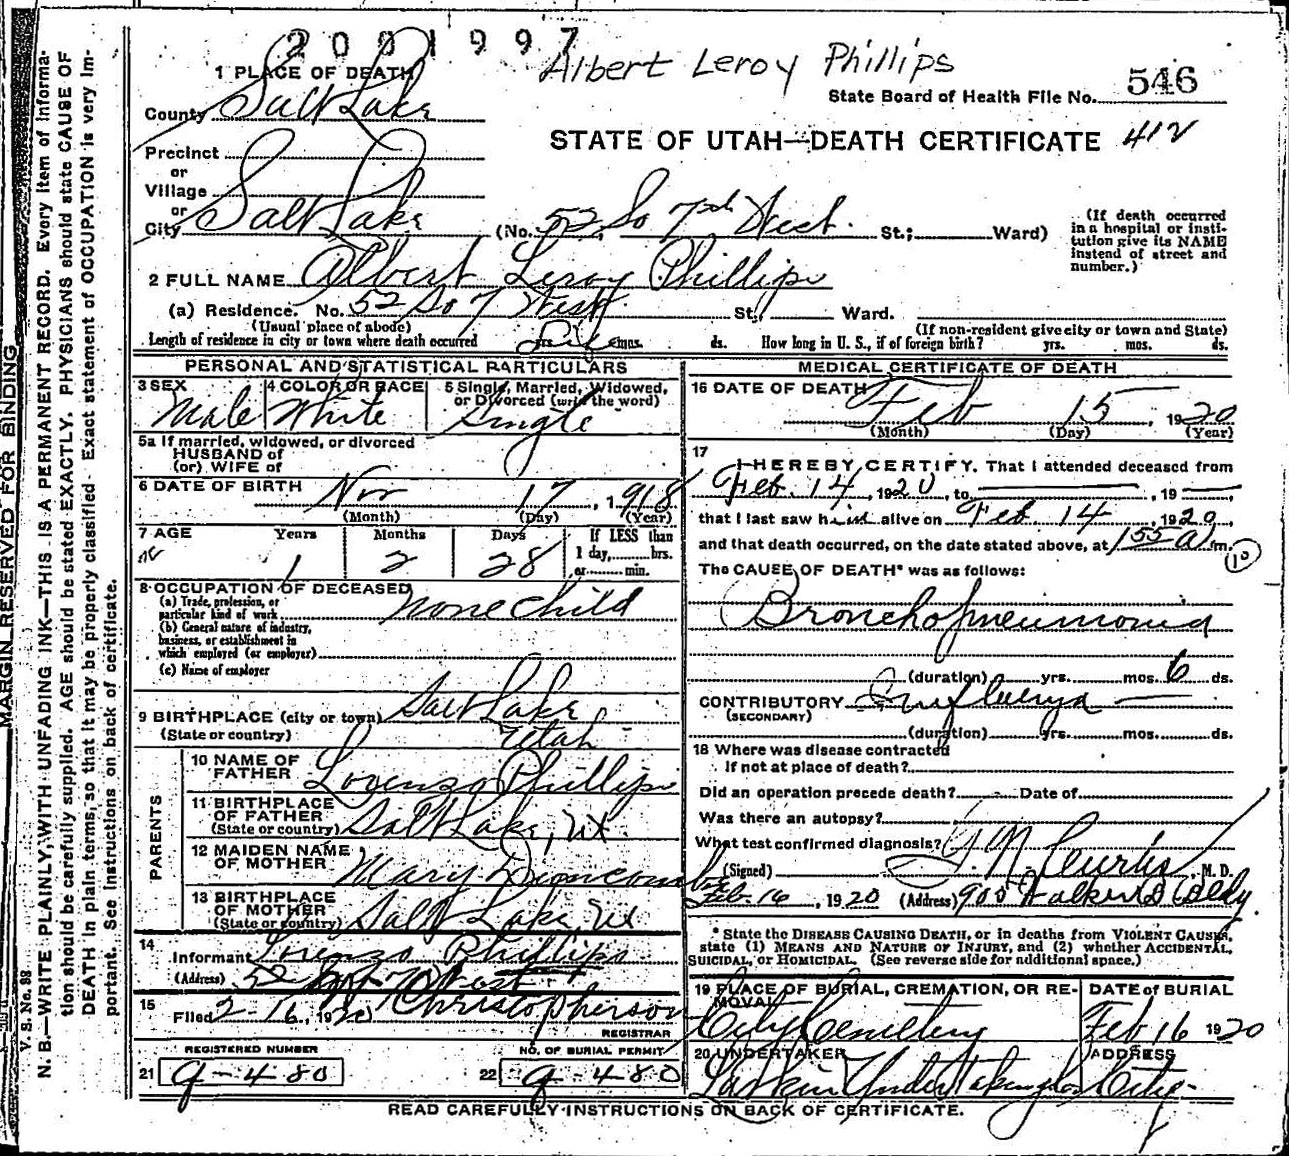 2001997
Albert Leroy Phillips
1 PLACE OF DEATH
State Board of Health File No. 546
County Salt Lake
STATE OF UTAH—DEATH CERTIFICATE 412
Precinct
or
Village
or
City Salt Lake (No. 52 So 7th West St.; Ward)
(If death occurred in a hospital or insti-
tution give its NAME
instead of street and
number.)
2 FULL NAME Albert Leroy Phillips
(a) Residence. No. 52 So 7 West St. Ward.
(Usual place of abode) (If non-resident give city or town and State)
Length of residence in city or town where death occurred Life mos. ds. How long in U. S., if of foreign birth? yrs. mos. ds.
PERSONAL AND STATISTICAL PARTICULARS
3 SEX Male
4 COLOR OR RACE White
5 Single, Married, Widowed,
or Divorced (write the word)
Single
5a If married, widowed, or divorced
HUSBAND of
(or) WIFE of
6 DATE OF BIRTH Nov 17, 1918
(Month) (Day) (Year)
7 AGE Years Months Days If LESS than
1 2 28 1 day, hrs.
or min.
8 OCCUPATION OF DECEASED
(a) Trade, profession, or
particular kind of work None Child
(b) General nature of industry,
business, or establishment in
which employed (or employer)
(c) Name of employer
9 BIRTHPLACE (city or town) Salt Lake
(State or country) Utah
PARENTS
10 NAME OF
FATHER Lorenzo Phillips
11 BIRTHPLACE
OF FATHER
(State or country) Salt Lake, Ut
12 MAIDEN NAME
OF MOTHER Mary
13 BIRTHPLACE
OF MOTHER
(State or country) Salt Lake, Ut
14
Informant Lorenzo Phillips
(Address) 52 So 7 West
15
Filed 2-16, 1920 Christopherson
REGISTRAR
REGISTERED NUMBER
21 9-480
NO. OF BURIAL PERMIT
22 9-480
MEDICAL CERTIFICATE OF DEATH
16 DATE OF DEATH
Feb 15 1920
(Month) (Day) (Year)
17
I HEREBY CERTIFY. That I attended deceased from
Feb. 14, 1920, to , 19
that I last saw him alive on Feb 14, 1920,
and that death occurred, on the date stated above, at 155 a m.
The CAUSE OF DEATH* was as follows:
10
Bronchopneumonia
(duration) yrs. mos. 6 ds.
CONTRIBUTORY Influenza
(SECONDARY)
(duration) yrs. mos. ds.
18 Where was disease contracted
If not at place of death?
Did an operation precede death? Date of
Was there an autopsy?
What test confirmed diagnosis?
(Signed) Curtis, M. D.
Feb. 16, 1920 (Address) 900 Walker B Bldg.
* State the DISEASE CAUSING DEATH, or in deaths from VIOLENT CAUSES,
state (1) MEANS AND NATURE OF INJURY, and (2) whether ACCIDENTAL,
SUICIDAL, or HOMICIDAL. (See reverse side for additional space.)
19 PLACE OF BURIAL, CREMATION, OR RE-
MOVAL
City Cemetery
DATE of BURIAL
Feb 16 1920
20 UNDERTAKER
Larkin Undertaking Co
ADDRESS
City
READ CAREFULLY INSTRUCTIONS ON BACK OF CERTIFICATE.
MARGIN RESERVED FOR BINDING
V. S. No. 88
N. B.—WRITE PLAINLY, WITH UNFADING INK—THIS IS A PERMANENT RECORD. Every item of informa-
tion should be carefully supplied. AGE should be stated EXACTLY. PHYSICIANS should state CAUSE OF
DEATH in plain terms, so that it may be properly classified. Exact statement of OCCUPATION is very im-
portant. See instructions on back of certificate.